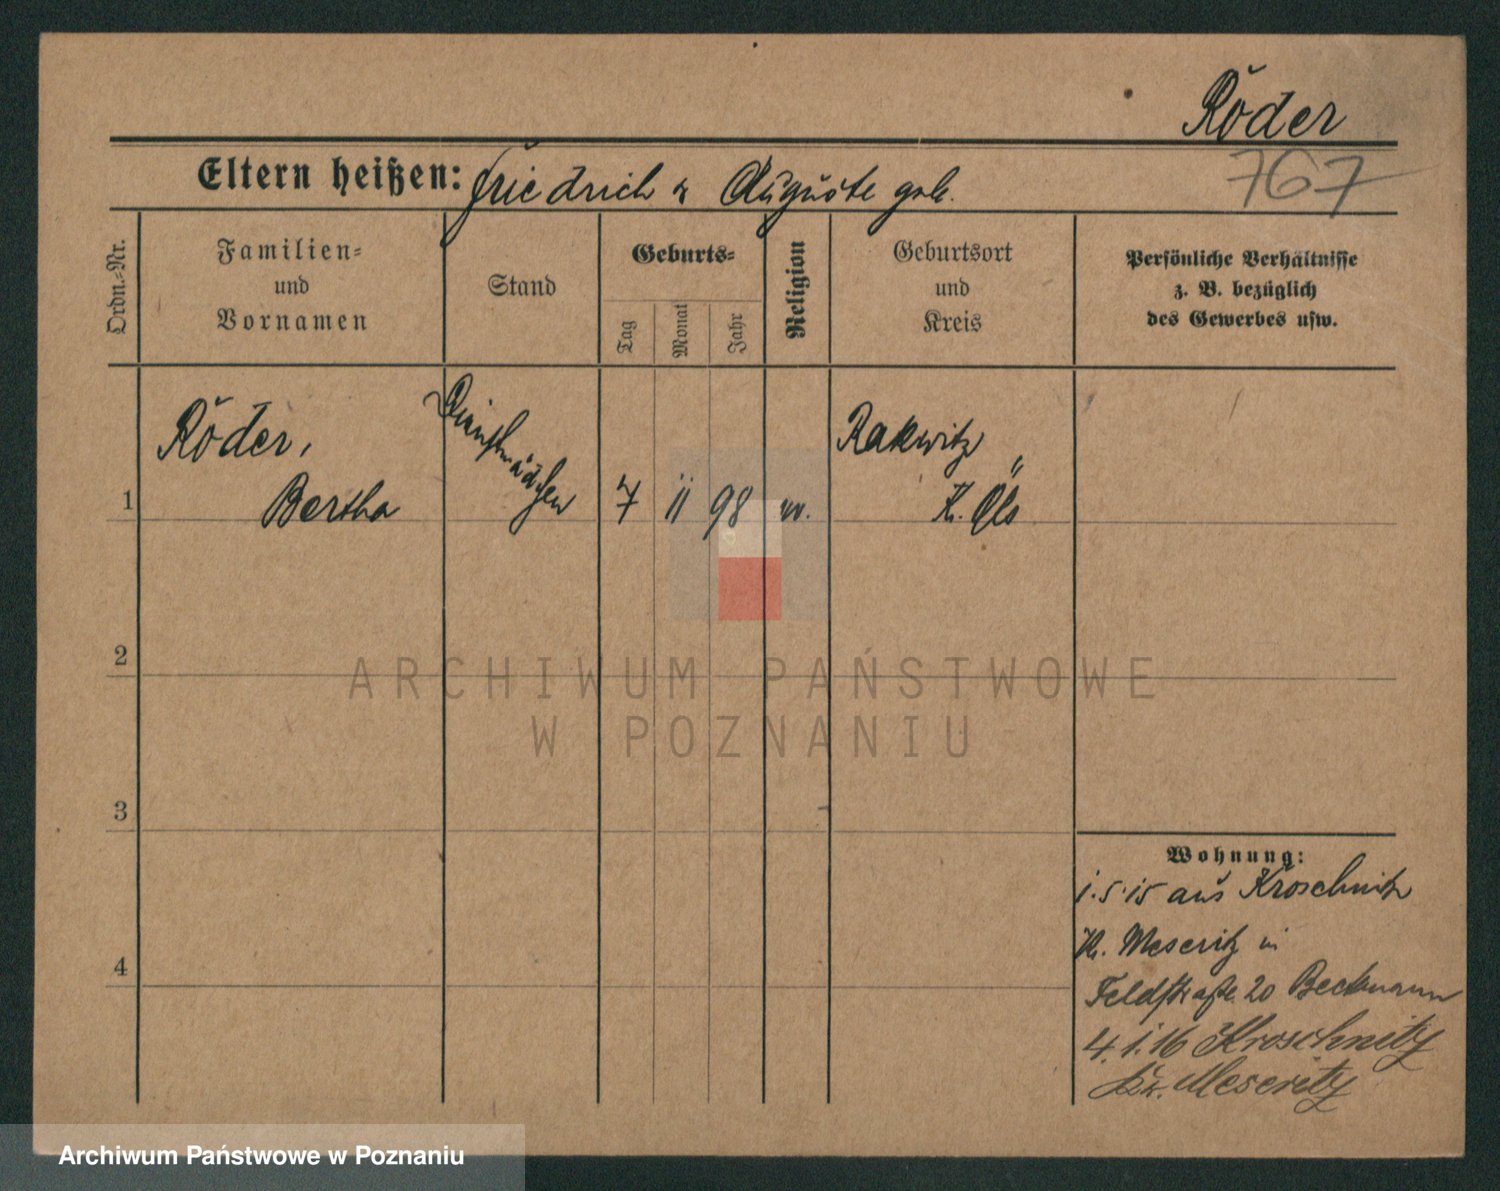 Röder
767
Eltern heißen: Friedrich u Auguste geb.
Ordn.-Nr.
Familien-
und
Vornamen
Stand
Geburts-
Tag
Monat
Jahr
Religion
Geburtsort
und
Kreis
Persönliche Verhältnisse
z. B. bezüglich
des Gewerbes usw.
1
Röder,
Bertha
Dienstmädchen
7
11
98
ev.
Rakwitz
K. Öls
2
3
4
ARCHIWUM PAŃSTWOWE
W POZNANIU
Wohnung:
1.5.15 aus Kroschnitz
Kr. Meseritz in
Feldstraße 20 Beckmann
4.1.16 Kroschnitz
Kr. Meseritz
Archiwum Państwowe w Poznaniu